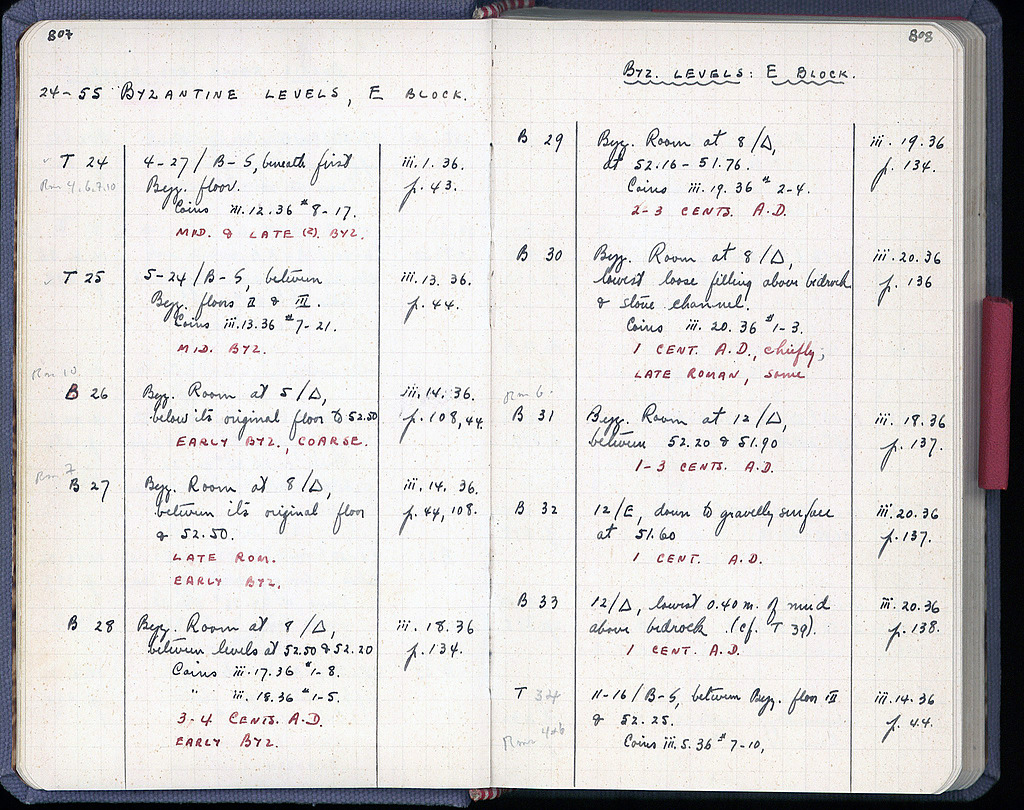 807
24-55 BYZANTINE LEVELS, E BLOCK.
T 24 4-27/B-S, beneath first iii.1.36.
Rm 4.6.7.10 Byz. floor. p. 43.
Coins iii.12.36 # 8-17.
MID. & LATE (?). BYZ.
T 25 5-24/B-S, between iii.13.36.
Byz. floors II & III. p. 44.
Coins iii.13.36 # 7-21.
MID. BYZ.
Rm 10.
B 26 Byz. Room at 5/Δ, iii.14.36.
below its original floor to 52.50 p. 108, 44.
EARLY BYZ., COARSE.
Rm 7
B 27 Byz. Room at 8/Δ, iii.14.36.
between its original floor p. 44, 108.
& 52.50.
LATE ROM.
EARLY BYZ.
B 28 Byz. Room at 8/Δ, iii.18.36
between levels at 52.50 & 52.20 p. 134.
Coins iii.17.36 # 1-8.
" iii.18.36 # 1-5.
3-4 CENTS. A.D.
EARLY BYZ.
808
BYZ. LEVELS: E BLOCK.
B 29 Byz. Room at 8/Δ, iii.19.36
at 52.16-51.76. p. 134.
Coins iii.19.36 # 2-4.
2-3 CENTS. A.D.
B 30 Byz. Room at 8/Δ, iii.20.36
lowest loose filling above bedrock p. 136
& stone channel.
Coins iii.20.36 # 1-3.
1 CENT. A.D., chiefly;
LATE ROMAN, some
Rm 6.
B 31 Byz. Room at 12/Δ, iii.18.36
between 52.20 & 51.90 p. 137.
1-3 CENTS. A.D.
B 32 12/E, down to gravelly surface iii.20.36
at 51.60 p. 137.
1 CENT. A.D.
B 33 12/Δ, lowest 0.40 m. of mud iii.20.36
above bedrock. (cf. T 39). p. 138.
1 CENT. A.D.
T 34 11-16/B-S, between Byz. floor III iii.14.36
& 52.25. p. 44.
Rm 4+6
Coins iii.5.36 # 7-10,